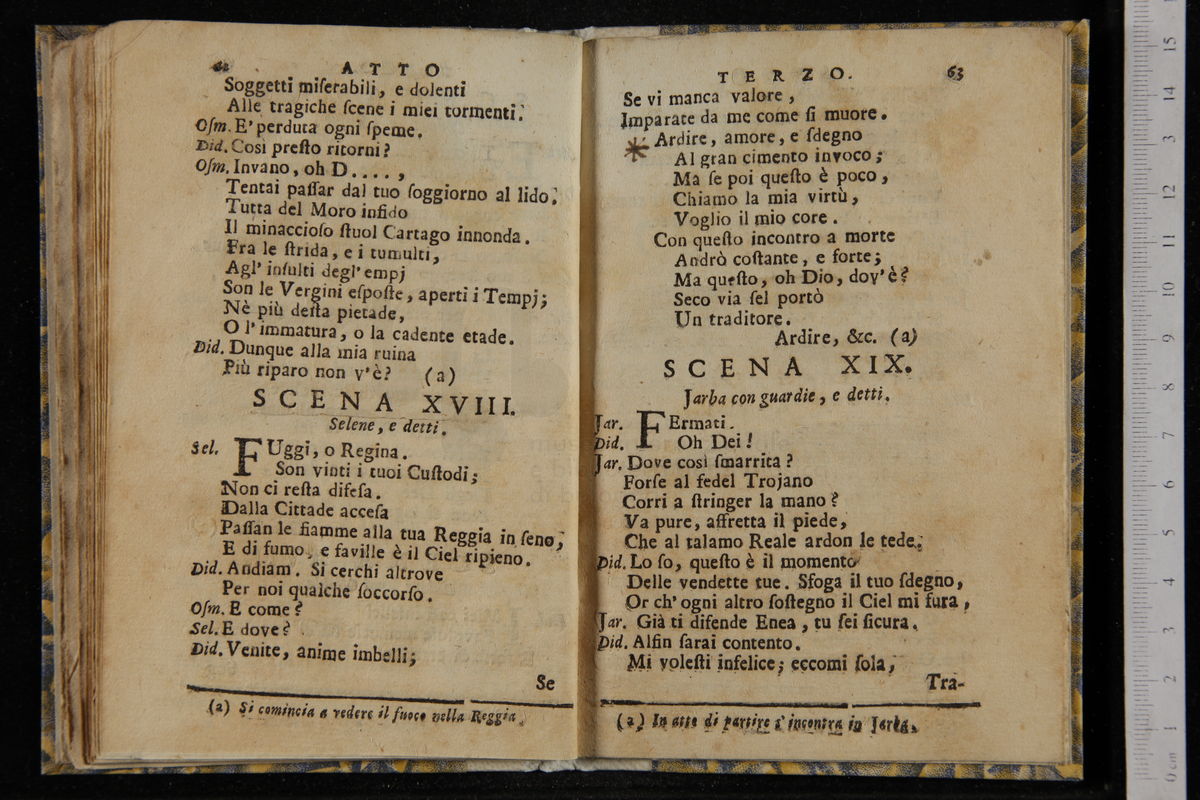 62 ATTO
Soggetti miſerabili, e dolenti
Alle tragiche ſcene i miei tormenti.
Oſm. E' perduta ogni ſpeme.
Did. Così preſto ritorni?
Oſm. Invano, oh D....,
Tentai paſſar dal tuo ſoggiorno al lido,
Tutta del Moro infido
Il minaccioſo ſtuol Cartago innonda.
Fra le ſtrida, e i tumulti,
Agl' inſulti degl' empj
Son le Vergini eſpoſte, aperti i Tempj;
Nè più deſta pietade,
O l' immatura, o la cadente etade.
Did. Dunque alla mia ruina
Più riparo non v'è? (a)
SCENA XVIII.
Selene, e detti.
Sel. FUggi, o Regina.
Son vinti i tuoi Cuſtodi;
Non ci reſta difeſa.
Dalla Cittade acceſa
Paſſan le fiamme alla tua Reggia in ſeno,
E di fumo, e faville è il Ciel ripieno.
Did. Andiam. Si cerchi altrove
Per noi qualche ſoccorſo.
Oſm. E come?
Sel. E dove?
Did. Venite, anime imbelli;
Se
(a) Si comincia a vedere il fuoco nella Reggia.
TERZO. 63
Se vi manca valore,
Imparate da me come ſi muore.
Ardire, amore, e ſdegno
Al gran cimento invoco;
Ma ſe poi queſto è poco,
Chiamo la mia virtù,
Voglio il mio core.
Con queſto incontro a morte
Andrò coſtante, e forte;
Ma queſto, oh Dio, dov'è?
Seco via ſel portò
Un traditore.
Ardire, &c. (a)
SCENA XIX.
Jarba con guardie, e detti.
Jar. FErmati.
Did. Oh Dei!
Jar. Dove così ſmarrita?
Forſe al fedel Trojano
Corri a ſtringer la mano?
Va pure, affretta il piede,
Che al talamo Reale ardon le tede.
Did. Lo ſo, queſto è il momento
Delle vendette tue. Sfoga il tuo ſdegno,
Or ch' ogni altro ſoſtegno il Ciel mi fura,
Jar. Già ti difende Enea, tu ſei ſicura.
Did. Alfin ſarai contento.
Mi voleſti infelice; eccomi ſola,
Tra-
(a) In atto di partire s' incontra in Jarba.
0 cm 1 2 3 4 5 6 7 8 9 10 11 12 13 14 15